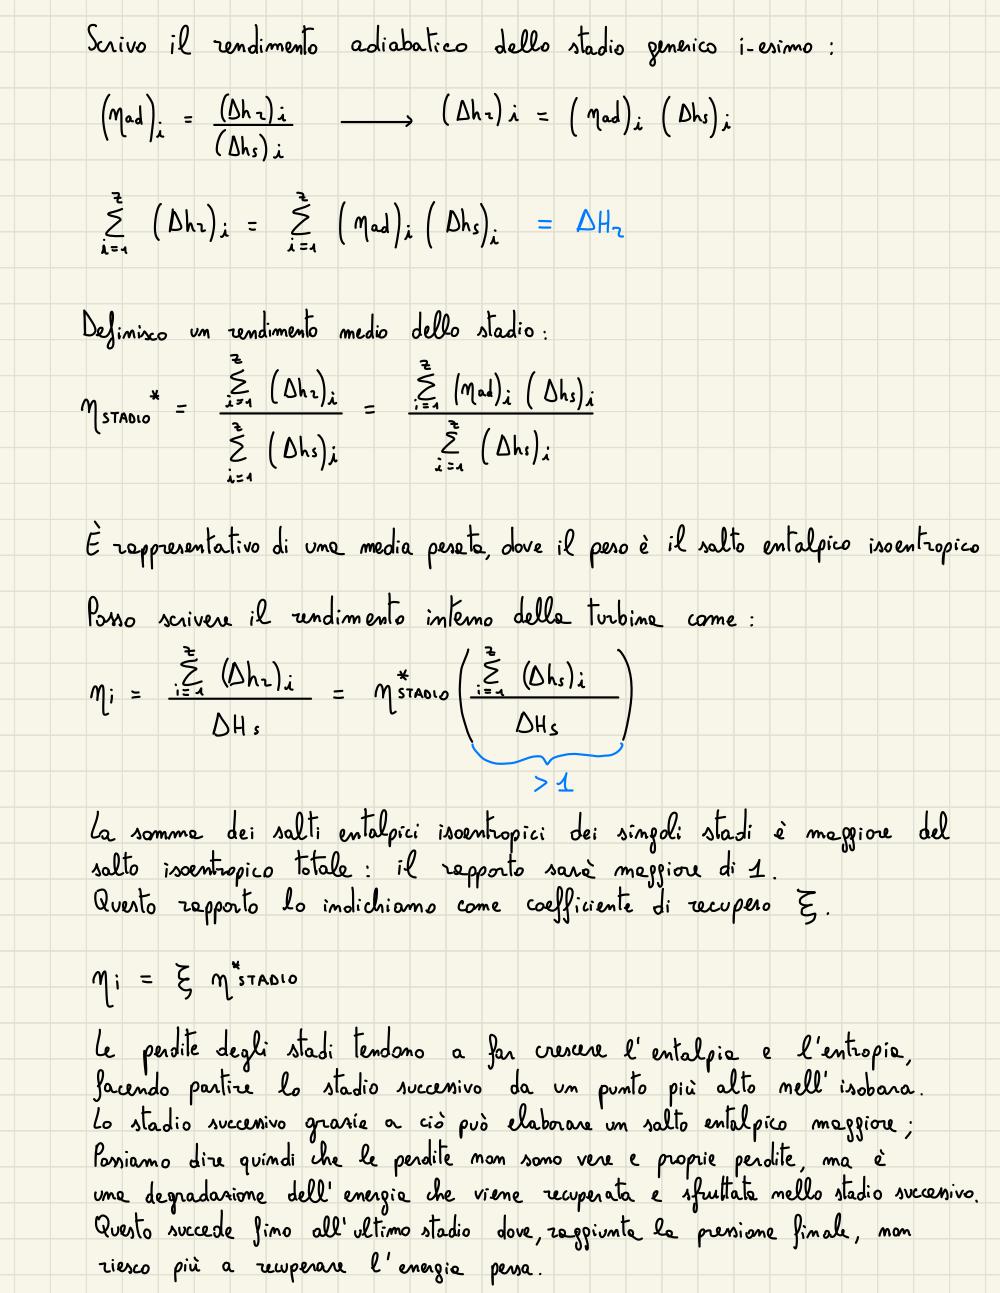 Scrivo il rendimento adiabatico dello stadio generico i-esimo :
(ηad)i = (Δhr)i / (Δhs)i ⟶ (Δhr)i = (ηad)i (Δhs)i
∑_{i=1}^{z} (Δhr)i = ∑_{i=1}^{z} (ηad)i (Δhs)i = ΔHr
Definisco un rendimento medio dello stadio :
ηSTADIO* = ∑_{i=1}^{z} (Δhr)i / ∑_{i=1}^{z} (Δhs)i = ∑_{i=1}^{z} (ηad)i (Δhs)i / ∑_{i=1}^{z} (Δhs)i
È rappresentativo di una media pesata, dove il peso è il salto entalpico isoentropico
Posso scrivere il rendimento interno della turbina come :
ηi = ∑_{i=1}^{z} (Δhr)i / ΔHs = η*STADIO ( ∑_{i=1}^{z} (Δhs)i / ΔHs )
> 1
La somma dei salti entalpici isoentropici dei singoli stadi è maggiore del
salto isoentropico totale : il rapporto sarà maggiore di 1.
Questo rapporto lo indichiamo come coefficiente di recupero ξ.
ηi = ξ η*STADIO
Le perdite degli stadi tendono a far crescere l'entalpia e l'entropia,
facendo partire lo stadio successivo da un punto più alto nell'isobara.
Lo stadio successivo grazie a ciò può elaborare un salto entalpico maggiore ;
Possiamo dire quindi che le perdite non sono vere e proprie perdite, ma è
una degradazione dell'energia che viene recuperata e sfruttata nello stadio successivo.
Questo succede fino all'ultimo stadio dove, raggiunta la pressione finale, non
riesco più a recuperare l'energia persa.